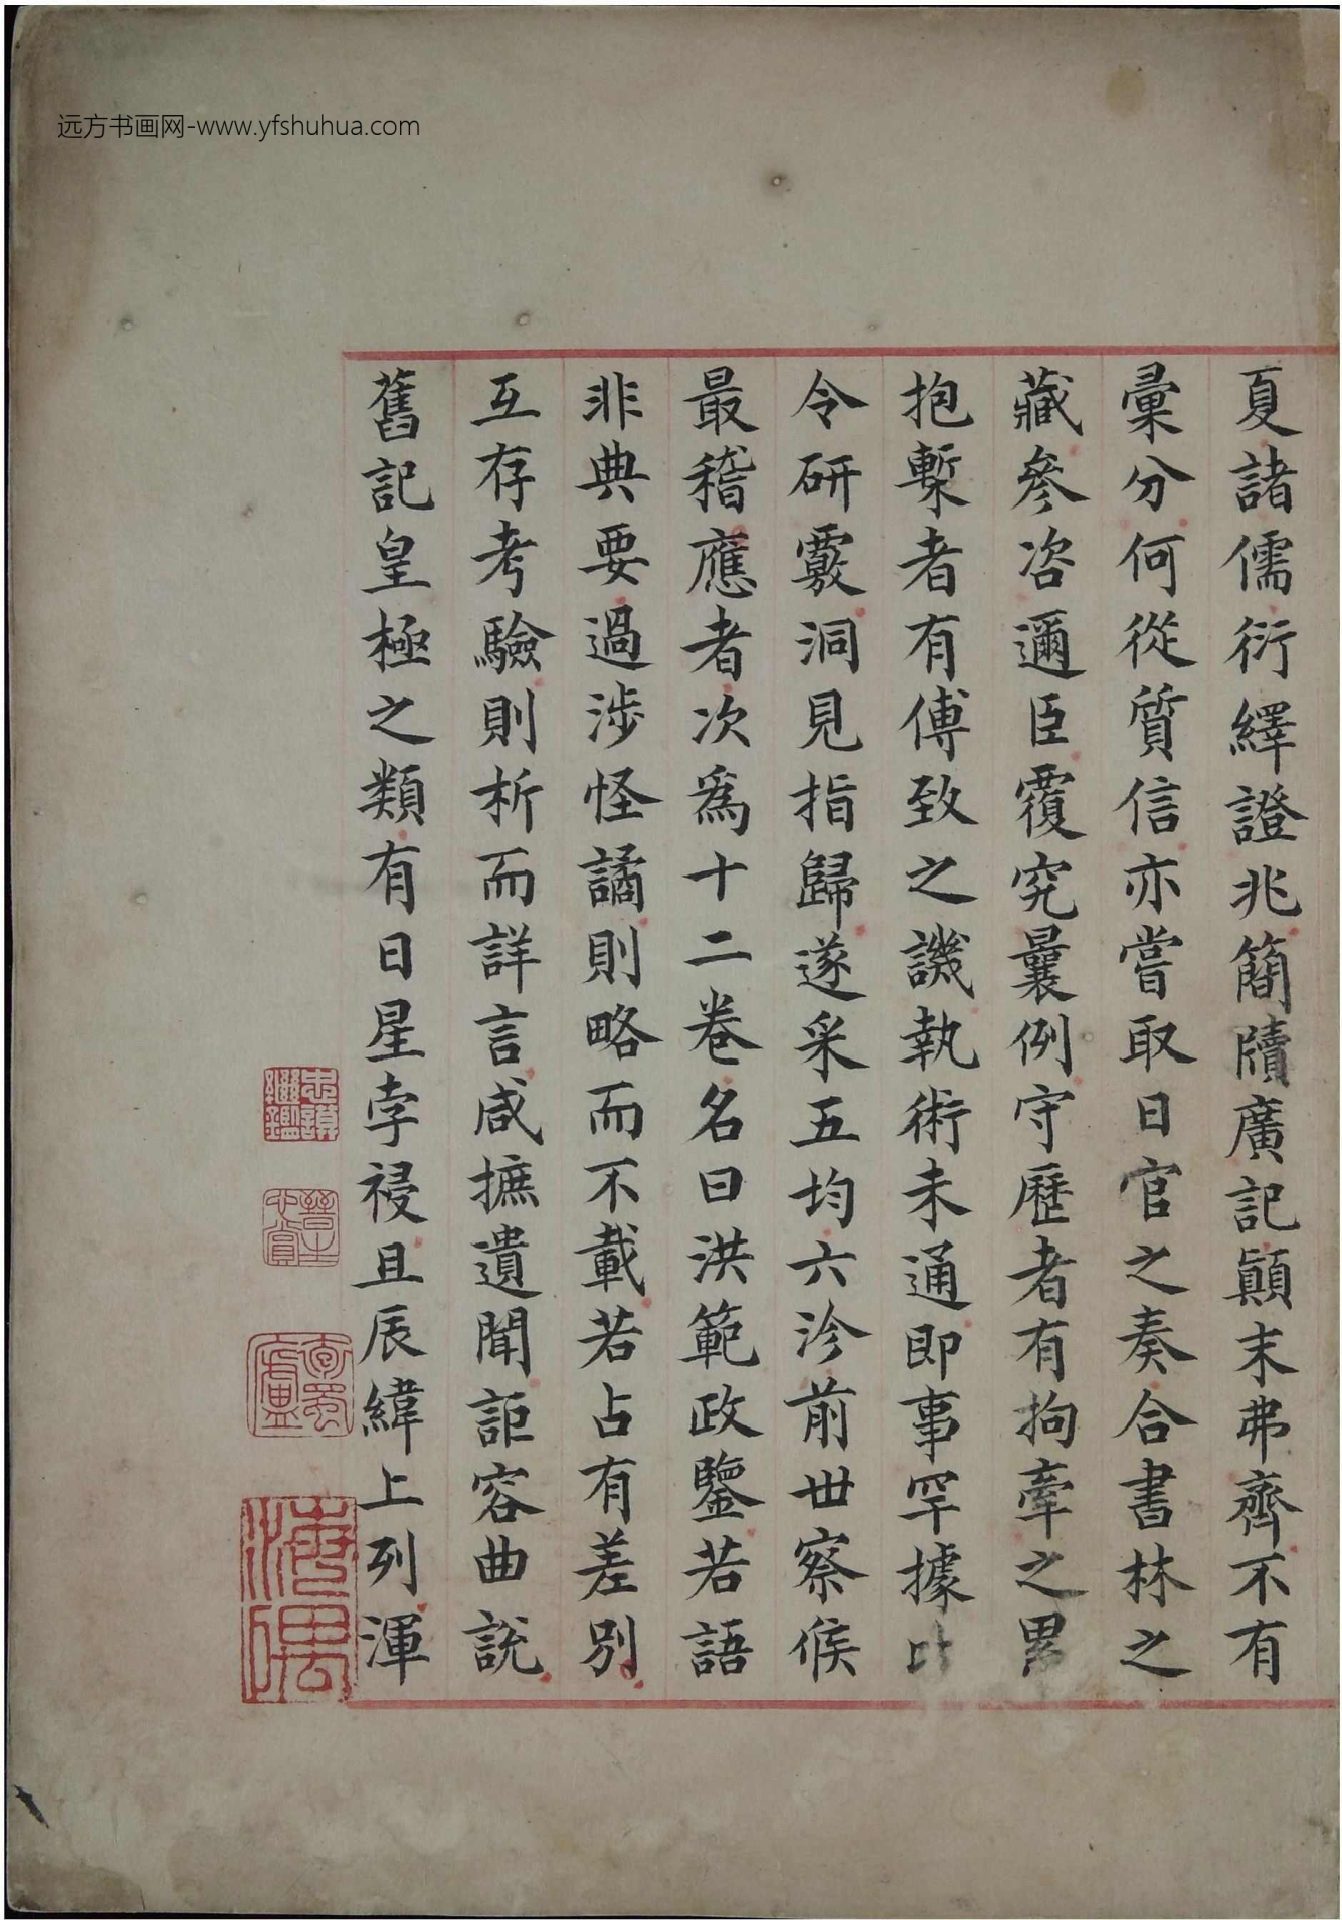 远方书画网-www.yfshuhua.com
夏諸儒衍繹證兆簡牘廣記顚末弗齊不有
彙分何從質信亦嘗取日官之奏合書林之
藏參咨邇臣覆究曩例守歷者有拘牽之累
抱槧者有傅致之譏執術未通即事罕據比
令研覈洞見指歸遂采五均六沴前世察候
最稽應者次爲十二卷名曰洪範政鑒若語
非典要過涉怪譎則略而不載若占有差別
互存考驗則析而詳言咸摭遺聞詎容曲說
舊記皇極之類有日星孛祲且辰緯上列渾